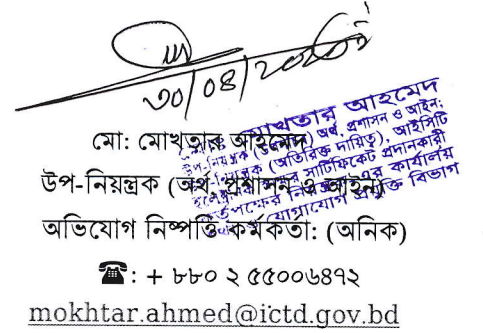 ৩০/০৪/২০২৩
মো: মোখতার আহমেদ
উপ-নিয়ন্ত্রক (অর্থ, প্রশাসন ও আইন)
অভিযোগ নিষ্পত্তি কর্মকর্তা: (অনিক)
☎: + ৮৮০ ২ ৫৫০০৬৪৭২
mokhtar.ahmed@ictd.gov.bd
মোখতার আহমেদ
উপ-নিয়ন্ত্রক (অর্থ, প্রশাসন ও আইন;
(অতিরিক্ত দায়িত্ব), আইসিটি
সার্টিফিকেট প্রদানকারী
কর্তৃপক্ষের নিয়ন্ত্রক এর কার্যালয়
যোগাযোগ প্রযুক্তি বিভাগ